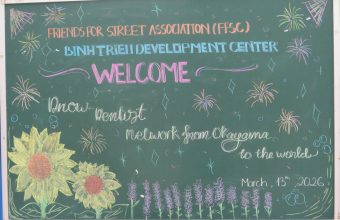 FRIENDS FOR STREET ASSOCIATION (FFSC)
BINH TRIEU DEVELOPMENT CENTER
WELCOME
Dnow Dentist
Network from Okayama
to the world
March, 13th, 2026